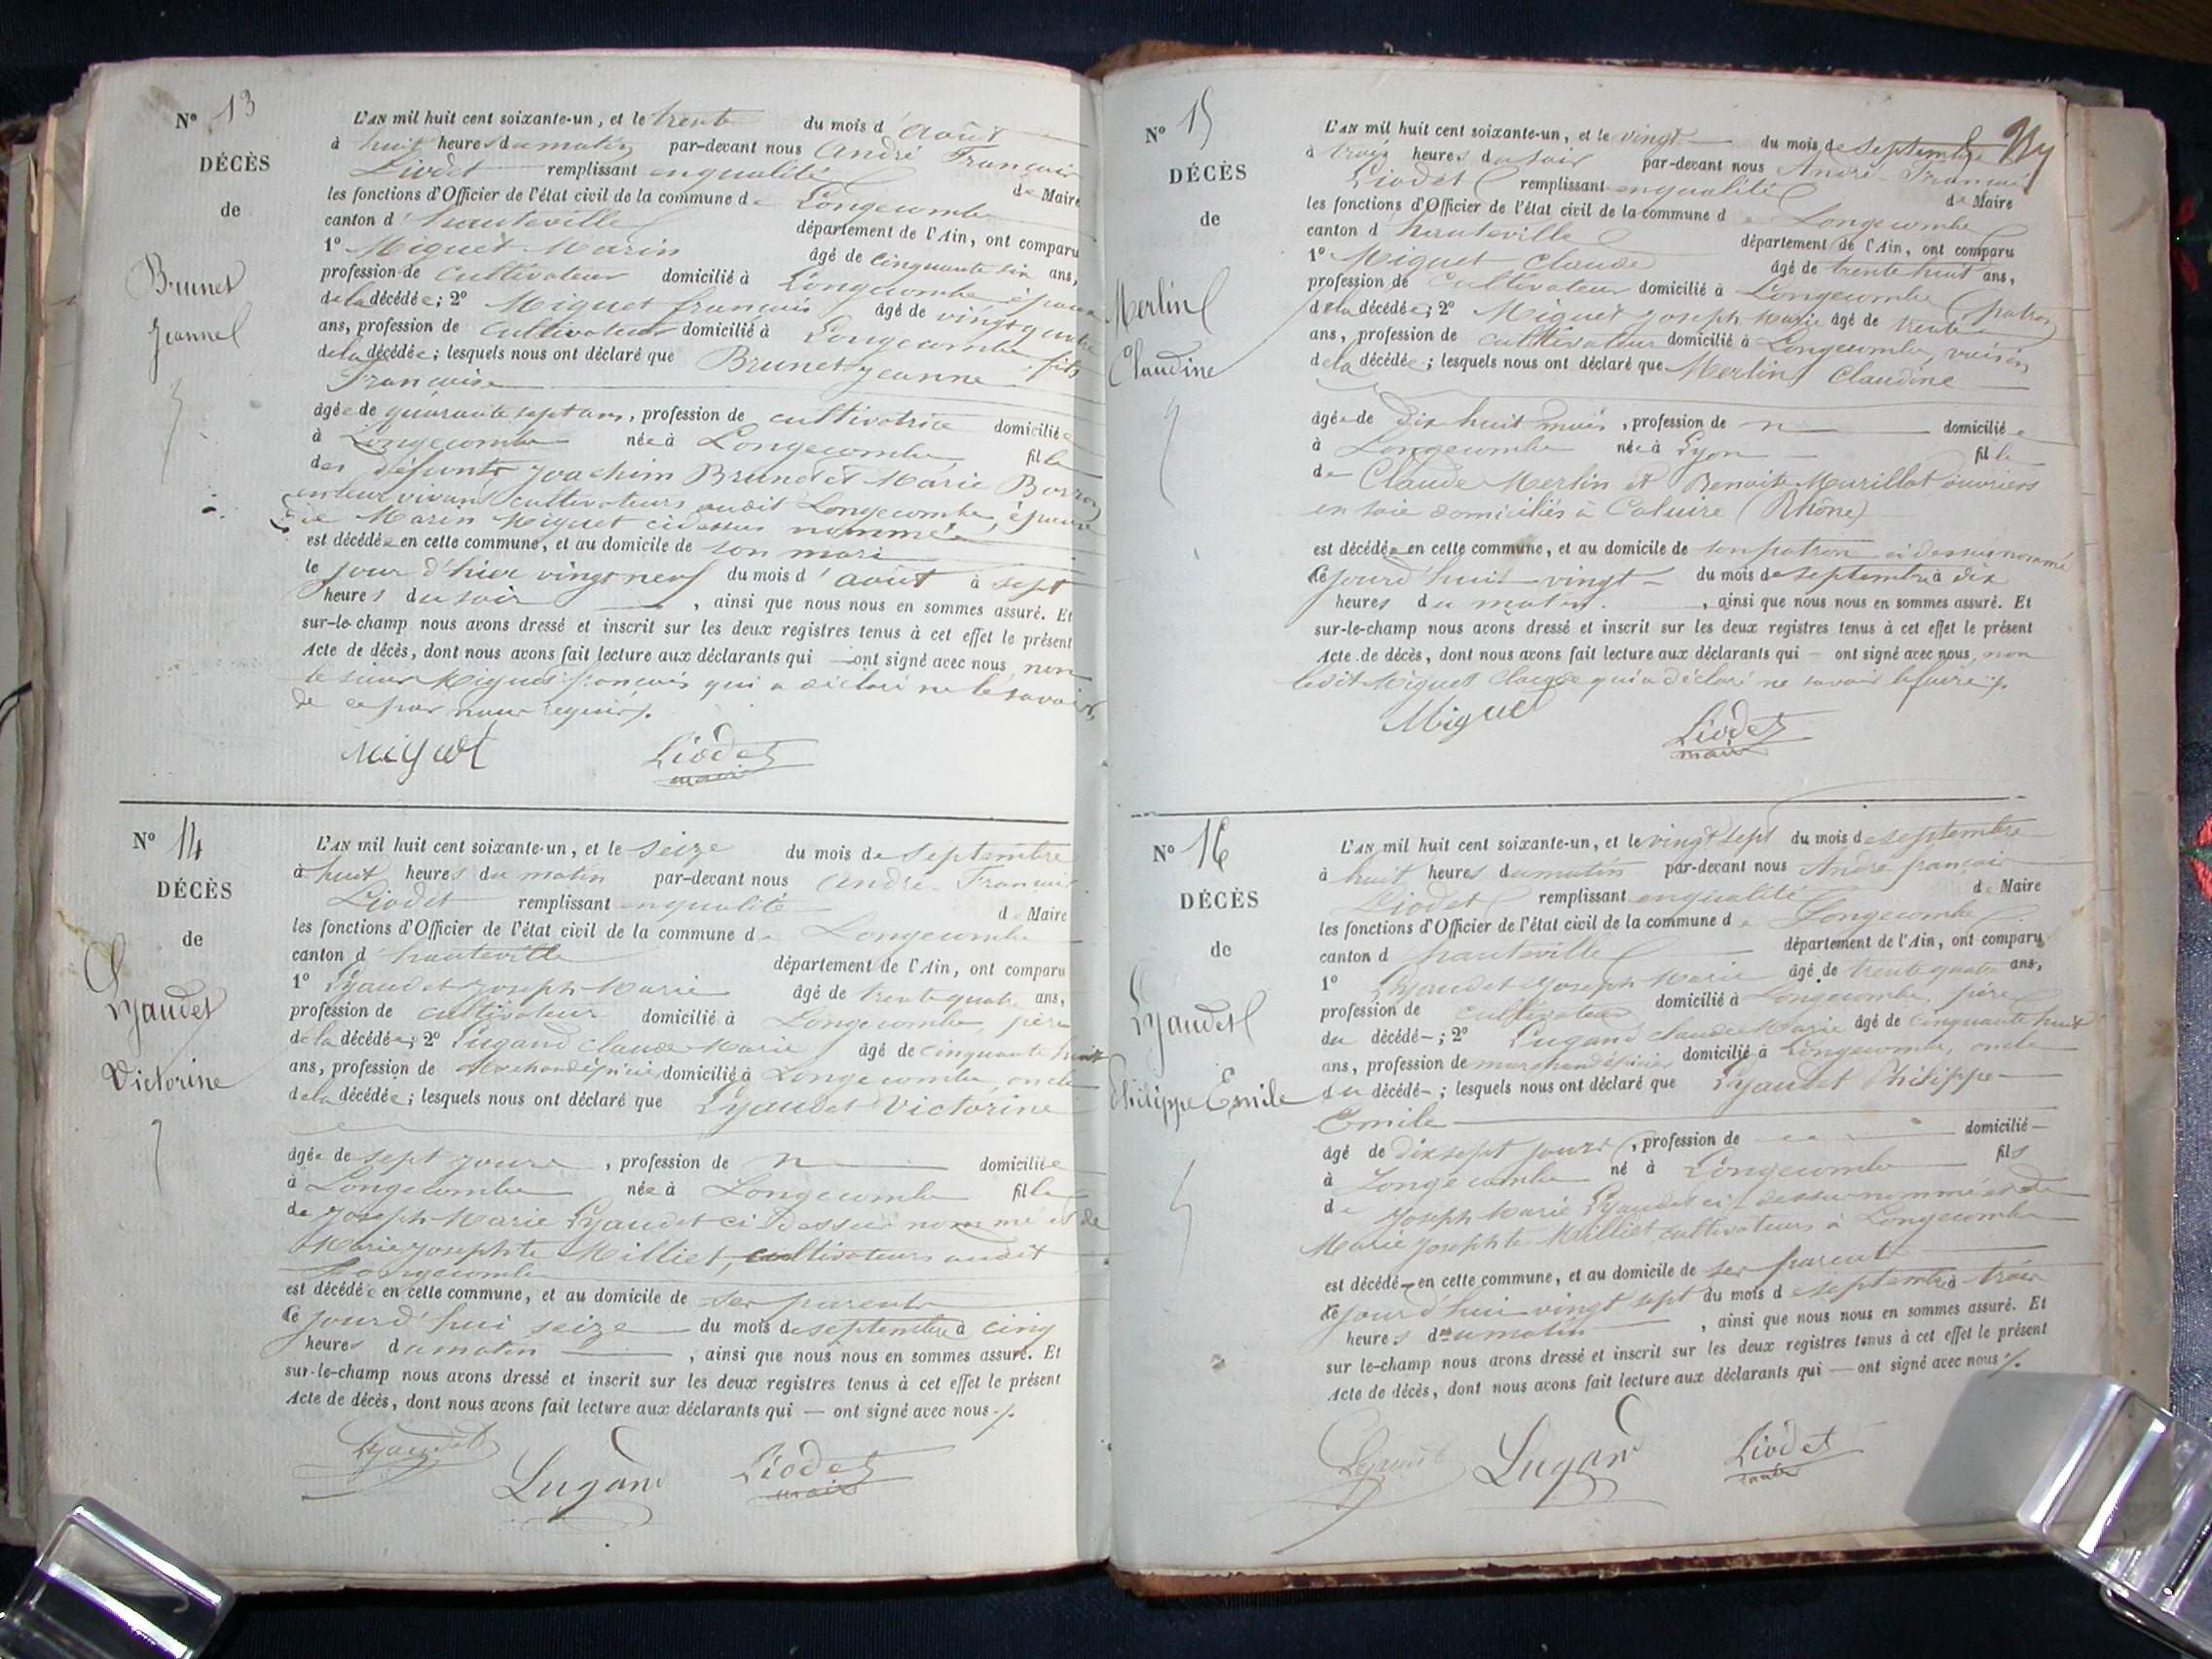 N° 13
DÉCÈS
de
Brunet
Jeanne
L'AN mil huit cent soixante-un, et le trente du mois d'Août
à huit heures du matin par-devant nous André François
Liodet remplissant en qualité de Maire
les fonctions d'Officier de l'état civil de la commune de Longecombe
canton d'hauteville département de l'Ain, ont comparu
1° Miguet Marin âgé de cinquante six ans,
profession de cultivateur domicilié à Longecombe époux
de la décédée; 2° Miguet françois âgé de vingt quatre
ans, profession de cultivateur domicilié à Longecombe, fils
de la décédée; lesquels nous ont déclaré que Brunet Jeanne
Françoise
âgée de quarante sept ans, profession de cultivatrice domiciliée
à Longecombe née à Longecombe fille
des défunts Joachim Brunet et Marie Borron
en leur vivant cultivateurs audit Longecombe, épouse
de Marin Miguet ci dessus nommé
est décédée en cette commune, et au domicile de son mari
le jour d'hier vingt neuf du mois d'août à sept
heures du soir, ainsi que nous nous en sommes assuré. Et
sur-le-champ nous avons dressé et inscrit sur les deux registres tenus à cet effet le présent
Acte de décès, dont nous avons fait lecture aux déclarants qui ont signé avec nous, non
le sieur Miguet françois qui a déclaré ne le savoir,
de ce par nous requis.
Miguet Liodet
maire
N° 14
DÉCÈS
de
Lyaudet
Victorine
L'AN mil huit cent soixante-un, et le seize du mois de septembre
à huit heures du matin par-devant nous André-François
Liodet remplissant en qualité de Maire
les fonctions d'Officier de l'état civil de la commune de Longecombe
canton d'hauteville département de l'Ain, ont comparu
1° Lyaudet Joseph Marie âgé de trente quatre ans,
profession de cultivateur domicilié à Longecombe, père
de la décédée; 2° Lugand Claude Marie âgé de cinquante huit
ans, profession de Marchand épicier domicilié à Longecombe, oncle
de la décédée; lesquels nous ont déclaré que Lyaudet Victorine
âgée de sept jours, profession de n domiciliée
à Longecombe née à Longecombe fille
de Joseph Marie Lyaudet ci dessus nommé et de
Marie Josephte Milliet, cultivateurs audit
Longecombe
est décédée en cette commune, et au domicile de ses parents
Ce jourd'hui seize du mois de septembre à cinq
heures du matin, ainsi que nous nous en sommes assuré. Et
sur-le-champ nous avons dressé et inscrit sur les deux registres tenus à cet effet le présent
Acte de décès, dont nous avons fait lecture aux déclarants qui — ont signé avec nous.
Lyaudet Lugand Liodet
maire
N° 15
DÉCÈS
de
Merlin
Claudine
L'AN mil huit cent soixante-un, et le vingt du mois de septembre
à trois heures du soir par-devant nous André-François
Liodet remplissant en qualité de Maire
les fonctions d'Officier de l'état civil de la commune de Longecombe
canton d hauteville département de l'Ain, ont comparu
1° Miguet Claude âgé de trente huit ans,
profession de Cultivateur domicilié à Longecombe (patron)
de la décédée; 2° Miguet Joseph Marie âgé de trente
ans, profession de cultivateur domicilié à Longecombe, voisin
de la décédée; lesquels nous ont déclaré que Merlin Claudine
âgée de Dix huit mois, profession de n domiciliée
à Longecombe née à Lyon fille
de Claude Merlin et Benoite Murillat ouvriers
en soie domiciliés à Caluire (Rhône)
est décédée en cette commune, et au domicile de son patron ci dessus nommé
Ce jourd'hui vingt du mois de septembre à dix
heures du matin., ainsi que nous nous en sommes assuré. Et
sur-le-champ nous avons dressé et inscrit sur les deux registres tenus à cet effet le présent
Acte de décès, dont nous avons fait lecture aux déclarants qui — ont signé avec nous, non
ledit Miguet Claude qui a déclaré ne savoir le faire.
Miguet Liodet
maire
N° 16
DÉCÈS
de
Lyaudet
Philippe Emile
L'AN mil huit cent soixante-un, et le vingt sept du mois de septembre
à huit heures du matin par-devant nous André françois
Liodet remplissant en qualité de Maire
les fonctions d'Officier de l'état civil de la commune de Longecombe
canton d hauteville département de l'Ain, ont comparu
1° Lyaudet Joseph Marie âgé de trente quatre ans,
profession de cultivateur domicilié à Longecombe, père
du décédé-; 2° Lugand Claude Marie âgé de cinquante huit
ans, profession de marchand épicier domicilié à Longecombe, oncle
du décédé-; lesquels nous ont déclaré que Lyaudet Philippe
Emile
âgé de dix sept jours, profession de domicilié
à Longecombe né à Longecombe fils
de Joseph Marie Lyaudet ci-dessus nommé et de
Marie Josephte Milliet, cultivateurs à Longecombe
est décédé en cette commune, et au domicile de ses parents
Ce jourd'hui vingt sept du mois de septembre à trois
heures du matin, ainsi que nous nous en sommes assuré. Et
sur le-champ nous avons dressé et inscrit sur les deux registres tenus à cet effet le présent
Acte de décès, dont nous avons fait lecture aux déclarants qui — ont signé avec nous.
Lyaudet Lugand Liodet
maire